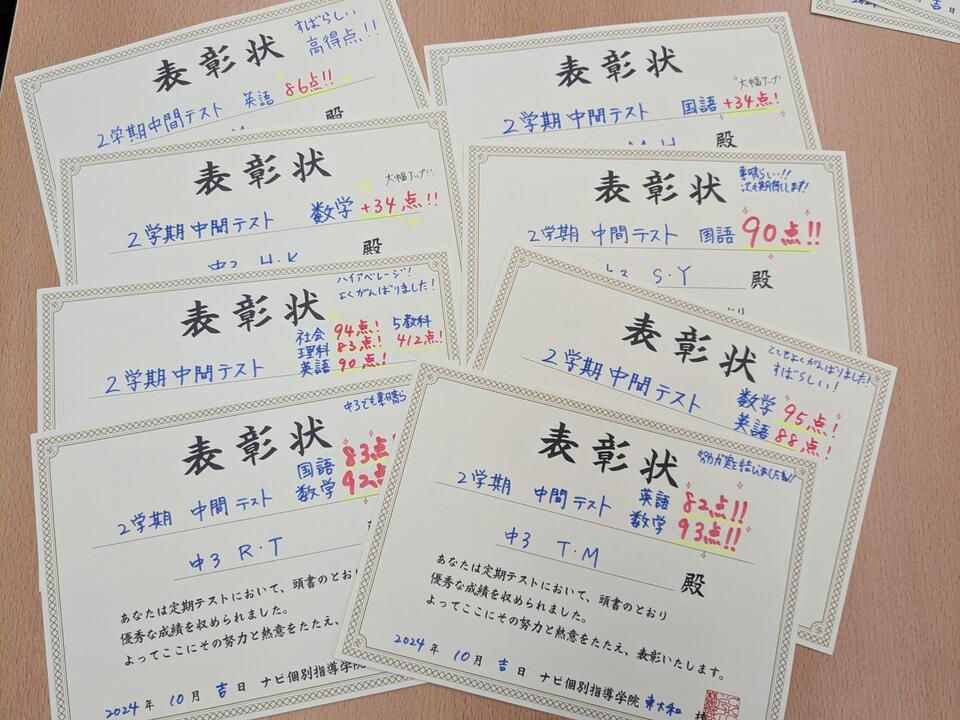 すばらしい
高得点!!
表彰状
2学期中間テスト 英語 86点!!
殿
大幅アップ!
表彰状
2学期中間テスト 国語 +34点!
M.H 殿
大幅アップ!!
表彰状
2学期中間テスト 数学 +34点!!
中2 H.K 殿
素晴らしい!!
次も期待してます!
表彰状
2学期 中間 テスト 国語 90点!!
S.Y 殿
ハイアベレージ!
よくがんばりました!
表彰状
社会 94点! 5教科
理科 83点! 412点!
2学期中間テスト 英語 90点!
とてもよくがんばりました!
すばらしい!
表彰状
2学期中間テスト 数学 95点!
英語 88点!
中3でも素晴ら
表彰状
国語 83点!
2学期 中間 テスト 数学 92点
中3 R.T
あなたは定期テストにおいて、頭書のとおり
優秀な成績を収められました。
よってここにその努力と熱意をたたえ、
2024年 10月 吉日 ナビ個別指導学院
努力が実を結びましたね!!
表彰状
2学期 中間 テスト 英語 82点!!
数学 93点!!
中3 T.M 殿
あなたは定期テストにおいて、頭書のとおり
優秀な成績を収められました。
よってここにその努力と熱意をたたえ、表彰いたします。
2024年 10月 吉日 ナビ個別指導学院 東大和 校